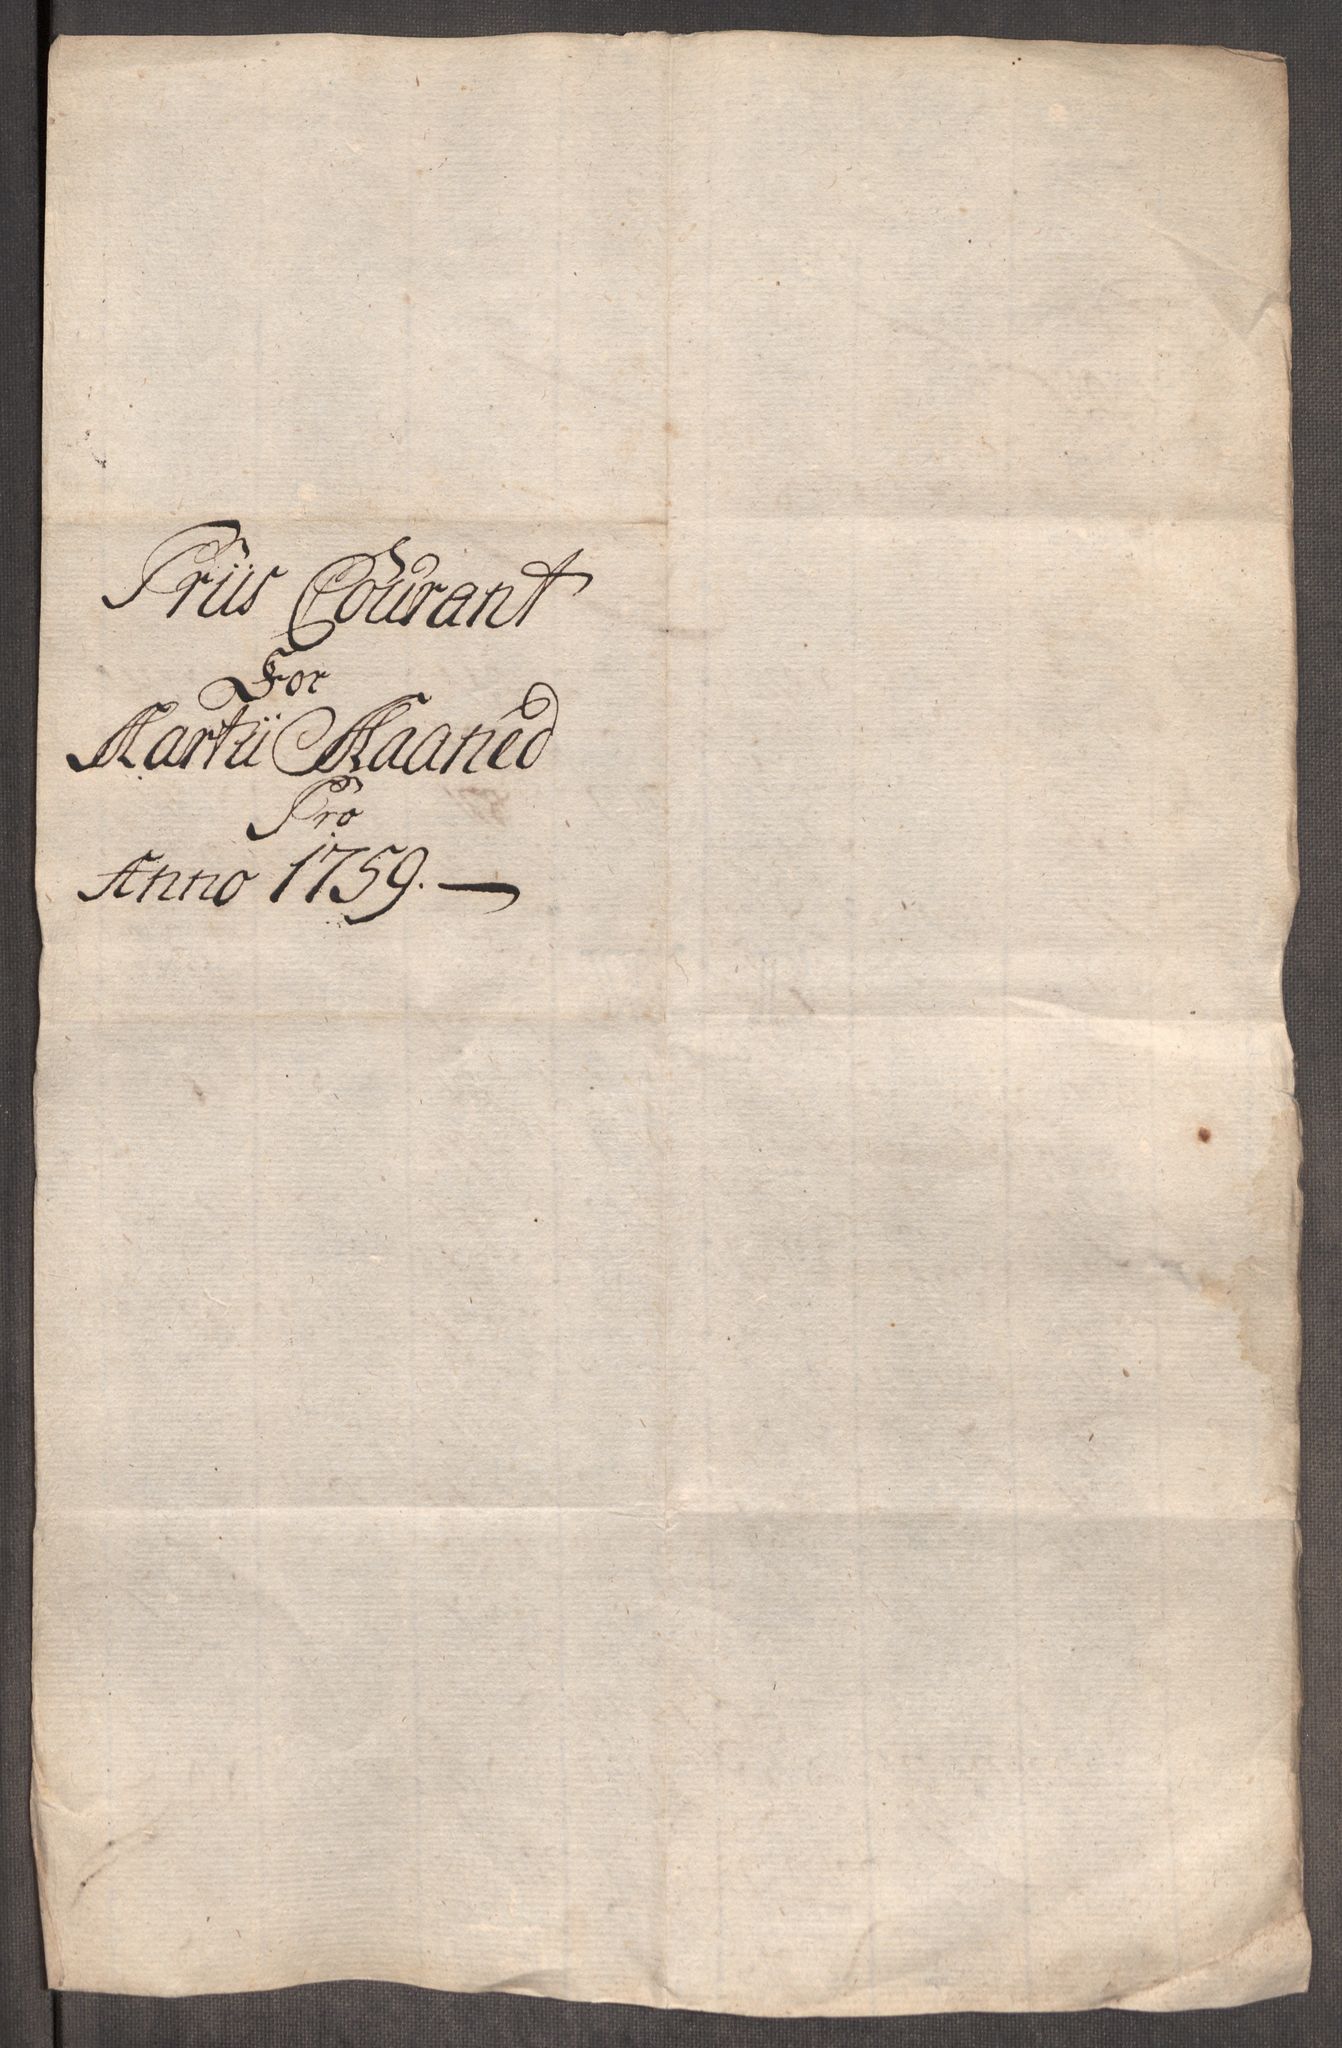 Priis Courant
For
Martii Maaned
Pro
Anno 1759. —